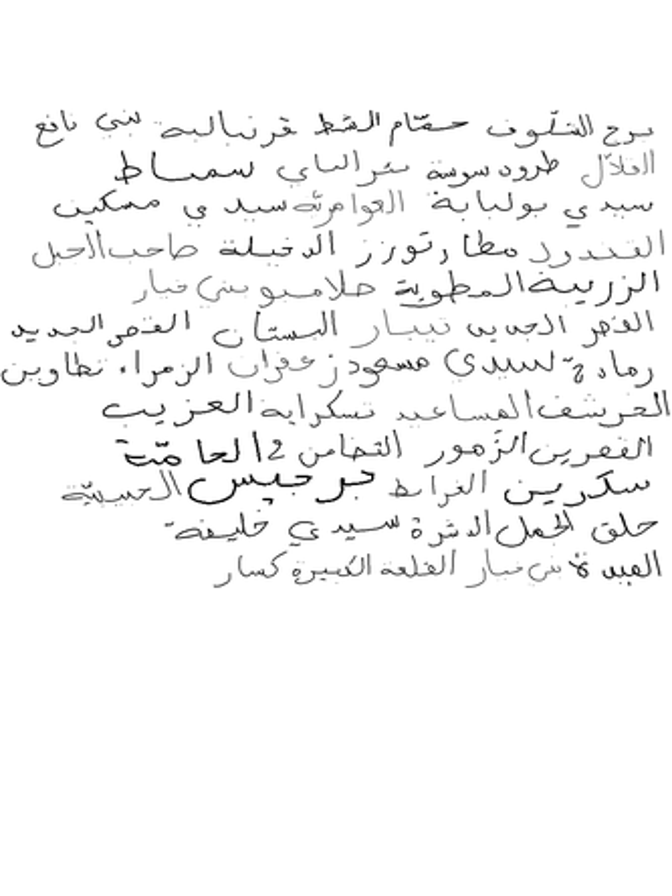 برج الشلوف حمّام الشط قرنبالية بني نافع
الفلال طرود سوسة بئر الباي سمباط
سيدي بولبابة العوامرية سيدي مسكين
القندول مطار توزر الدخيلة صاحب الجبل
الزريبة المطوية حلامبو بني خيار
القصر الجديد تيبار البستان القصر الجديد
رمادة سيدي مسعود زعفران الزهراء تطاوين
الحرشف المساعيد تسكراية العزيب
القصرين الزّهور التضامن 2 الحامّة
سكرين الخرايط جرجيس الحسينيّة
حلق الجمل الدشرة سيدي خليفة
العبدة بني خيار القلعة الكبيرة كسار